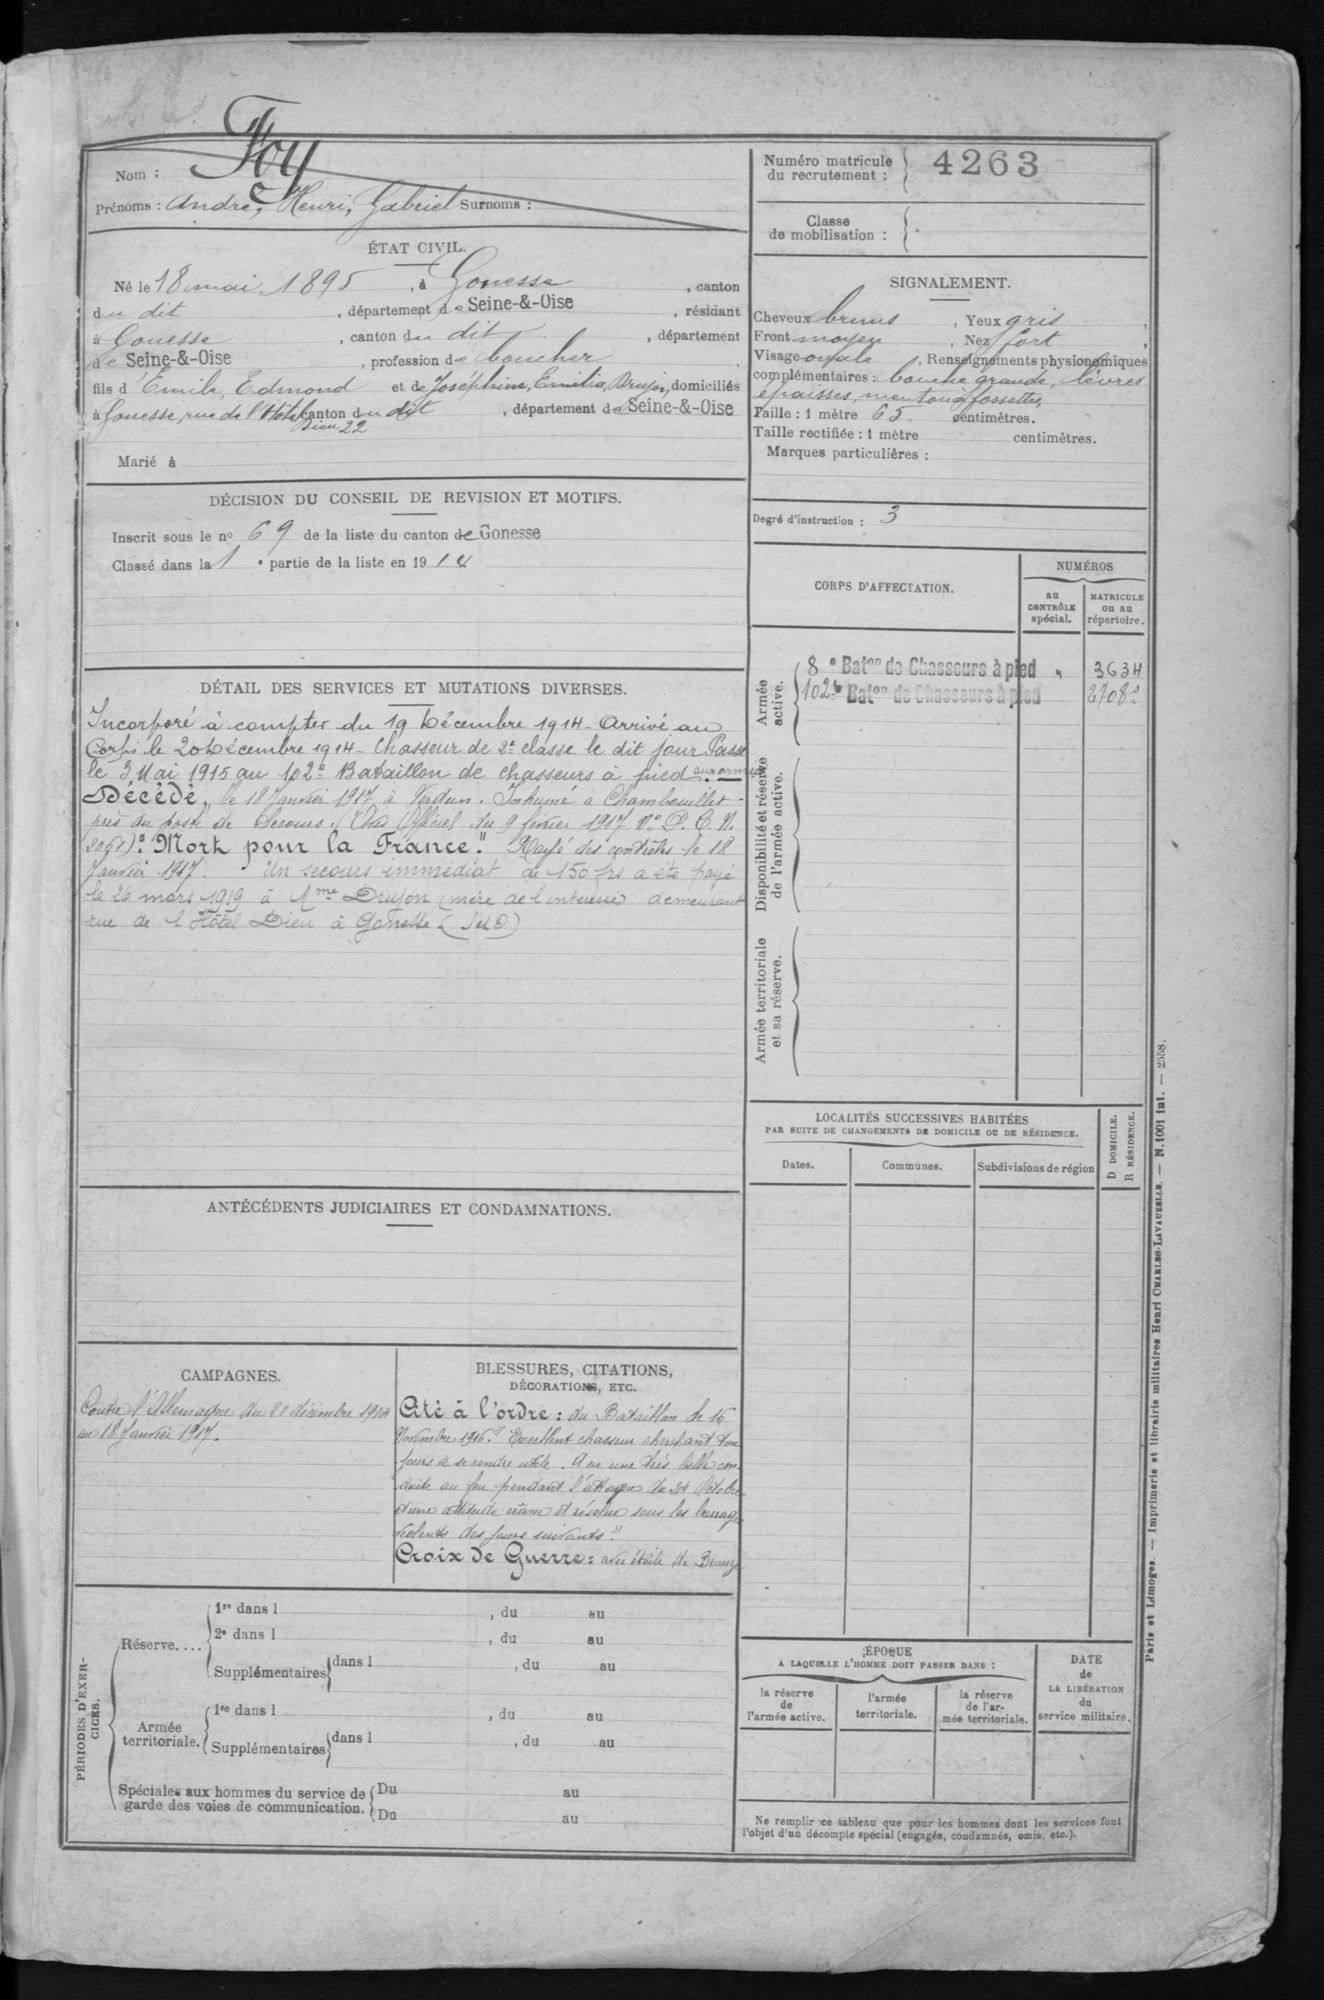 Nom : Foy
Prénoms : André, Henri, Gabriel Surnoms :
Numéro matricule
du recrutement : 4263
Classe
de mobilisation :
ÉTAT CIVIL.
Né le 18 mai 1895, à Gonesse, canton
du dit, département de Seine-&-Oise, résidant
à Gonesse, canton du dit, département
de Seine-&-Oise, profession de boucher,
fils d'Emile, Edmond et de Joséphine, Emilia, Drujon, domiciliés
à Gonesse, rue de l'Hôtel canton du dit, département de Seine-&-Oise
Dieu 22
Marié à
SIGNALEMENT.
Cheveux bruns, Yeux gris,
Front moyen, Nez fort,
Visage ovale, Renseignements physionomiques
complémentaires : bouche grande, lèvres
épaisses, menton à fossettes,
Taille : 1 mètre 65 centimètres.
Taille rectifiée : 1 mètre centimètres.
Marques particulières :
Degré d'instruction : 3
DÉCISION DU CONSEIL DE REVISION ET MOTIFS.
Inscrit sous le no 69 de la liste du canton de Gonesse
Classé dans la 1e partie de la liste en 1914
CORPS D'AFFECTATION.
NUMÉROS
au
CONTRÔLE
spécial.
MATRICULE
ou au
répertoire.
Armée
active.
8e Baton de Chasseurs à pied " 3634
102e Baton de Chasseurs à pied 2708
Disponibilité et réserve
de l'armée active.
Armée territoriale
et sa réserve.
DÉTAIL DES SERVICES ET MUTATIONS DIVERSES.
Incorporé à compter du 19 Décembre 1914 - Arrivé au
Corps le 20 Décembre 1914 - Chasseur de 2e classe le dit jour Passé
le 3 Mai 1915 au 102e Bataillon de chasseurs à pied aux armées
Décédé, le 18 Janvier 1917 à Verdun. Inhumé à Chambouillet
près du poste de Secours. (Avis Officiel du 9 février 1917 No D. C. N.
): "Mort pour la France." Rayé des contrôles le 18
Janvier 1917. Un secours immédiat de 150 frs a été payé
le 26 mars 1919 à Mme Drujon (mère de l'intéressé) demeurant
rue de l'Hôtel Dieu à Gonesse (S et O)
ANTÉCÉDENTS JUDICIAIRES ET CONDAMNATIONS.
LOCALITÉS SUCCESSIVES HABITÉES
PAR SUITE DE CHANGEMENTS DE DOMICILE OU DE RÉSIDENCE.
D DOMICILE.
R RÉSIDENCE.
Dates. Communes. Subdivisions de région
CAMPAGNES.
Contre l'Allemagne du 20 décembre 1914
au 18 Janvier 1917.
BLESSURES, CITATIONS,
DÉCORATIONS, ETC.
Cité à l'ordre : du Bataillon le 16
Novembre 1916. "Excellent chasseur cherchant tou
jours à se rendre utile. A eu une très belle con
duite au feu pendant l'attaque du 24 Octobre
et une attitude crâne et résolue sous les barrages
violents des jours suivants".
Croix de Guerre : avec étoile de Bronze
PÉRIODES D'EXER-
CICES.
Réserve....
1re dans l , du au
2e dans l , du au
Supplémentaires dans l , du au
Armée
territoriale.
1re dans l , du au
Supplémentaires dans l , du au
Spéciales aux hommes du service de
garde des voies de communication.
Du au
Du au
ÉPOQUE
A LAQUELLE L'HOMME DOIT PASSER DANS :
la réserve
de
l'armée active.
l'armée
territoriale.
la réserve
de l'ar-
mée territoriale.
DATE
de
LA LIBÉRATION
du
service militaire.
Ne remplir ce tableau que pour les hommes dont les services font
l'objet d'un décompte spécial (engagés, condamnés, omis, etc.).
Paris et Limoges. — Imprimerie et librairie militaires Henri CHARLES-LAVAUZELLE. — N. 1001 int. — 2558.